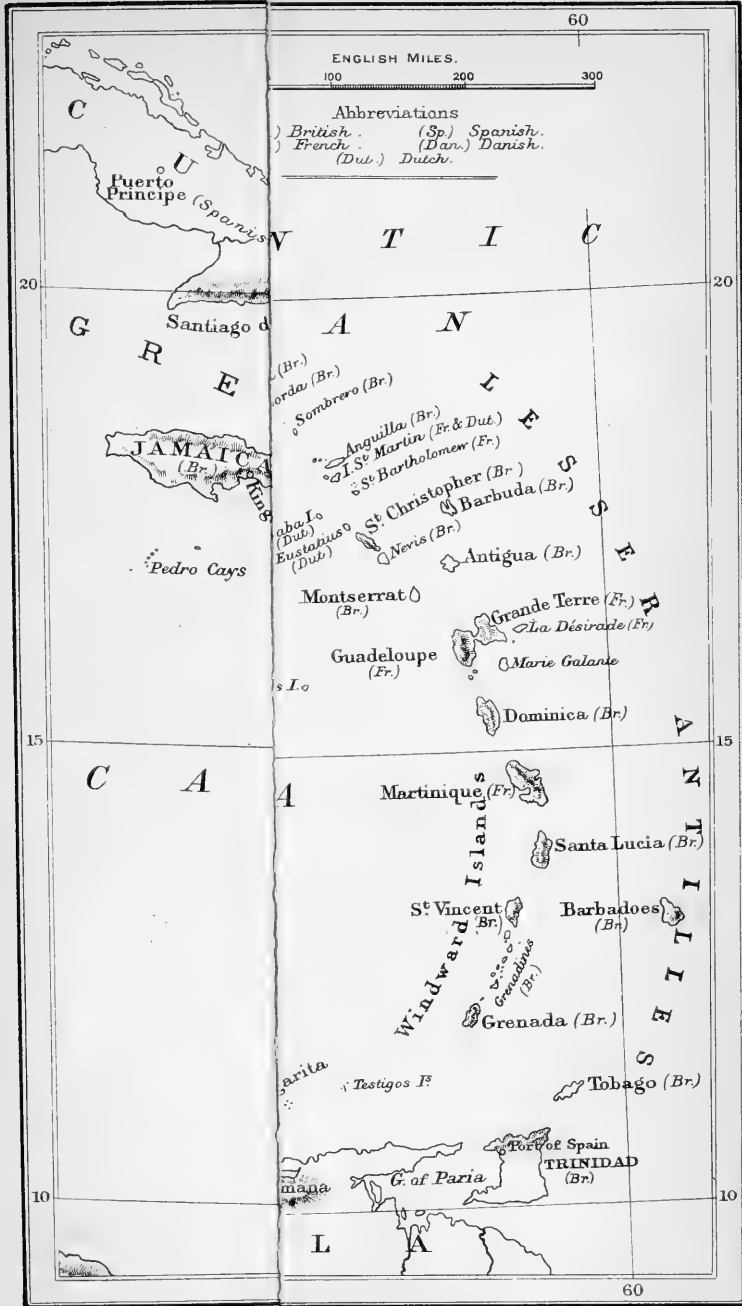 60
ENGLISH MILES.
100 200 300
Abbreviations
) British . (Sp.) Spanish.
) French . (Dan.) Danish.
(Dut.) Dutch.
C U
Puerto
Principe (Spanis
N T I C
20 20
Santiago d
A N
G R E
(Br.)
orda (Br.)
Sombrero (Br.)
L E S S E R
Anguilla (Br.)
I. St. Martin (Fr. & Dut.)
St. Bartholomew (Fr.)
JAMAICA
(Br.)
King
St. Christopher (Br.)
Barbuda (Br.)
aba I.
(Dut.)
Eustatius
(Dut.)
Nevis (Br.)
Antigua (Br.)
Pedro Cays
Montserrat
(Br.)
Grande Terre (Fr.)
La Désirade (Fr.)
Guadeloupe
(Fr.)
Marie Galante
s I.
Dominica (Br.)
A N T I L L E S
15 15
C A A
Martinique (Fr.)
Windward Islands
Santa Lucia (Br.)
St. Vincent
Br.)
Barbadoes
(Br.)
Grenadines
(Br.)
Grenada (Br.)
arita
Testigos Is.
Tobago (Br.)
Port of Spain
TRINIDAD
(Br.)
mana
G. of Paria
10 10
L A
60